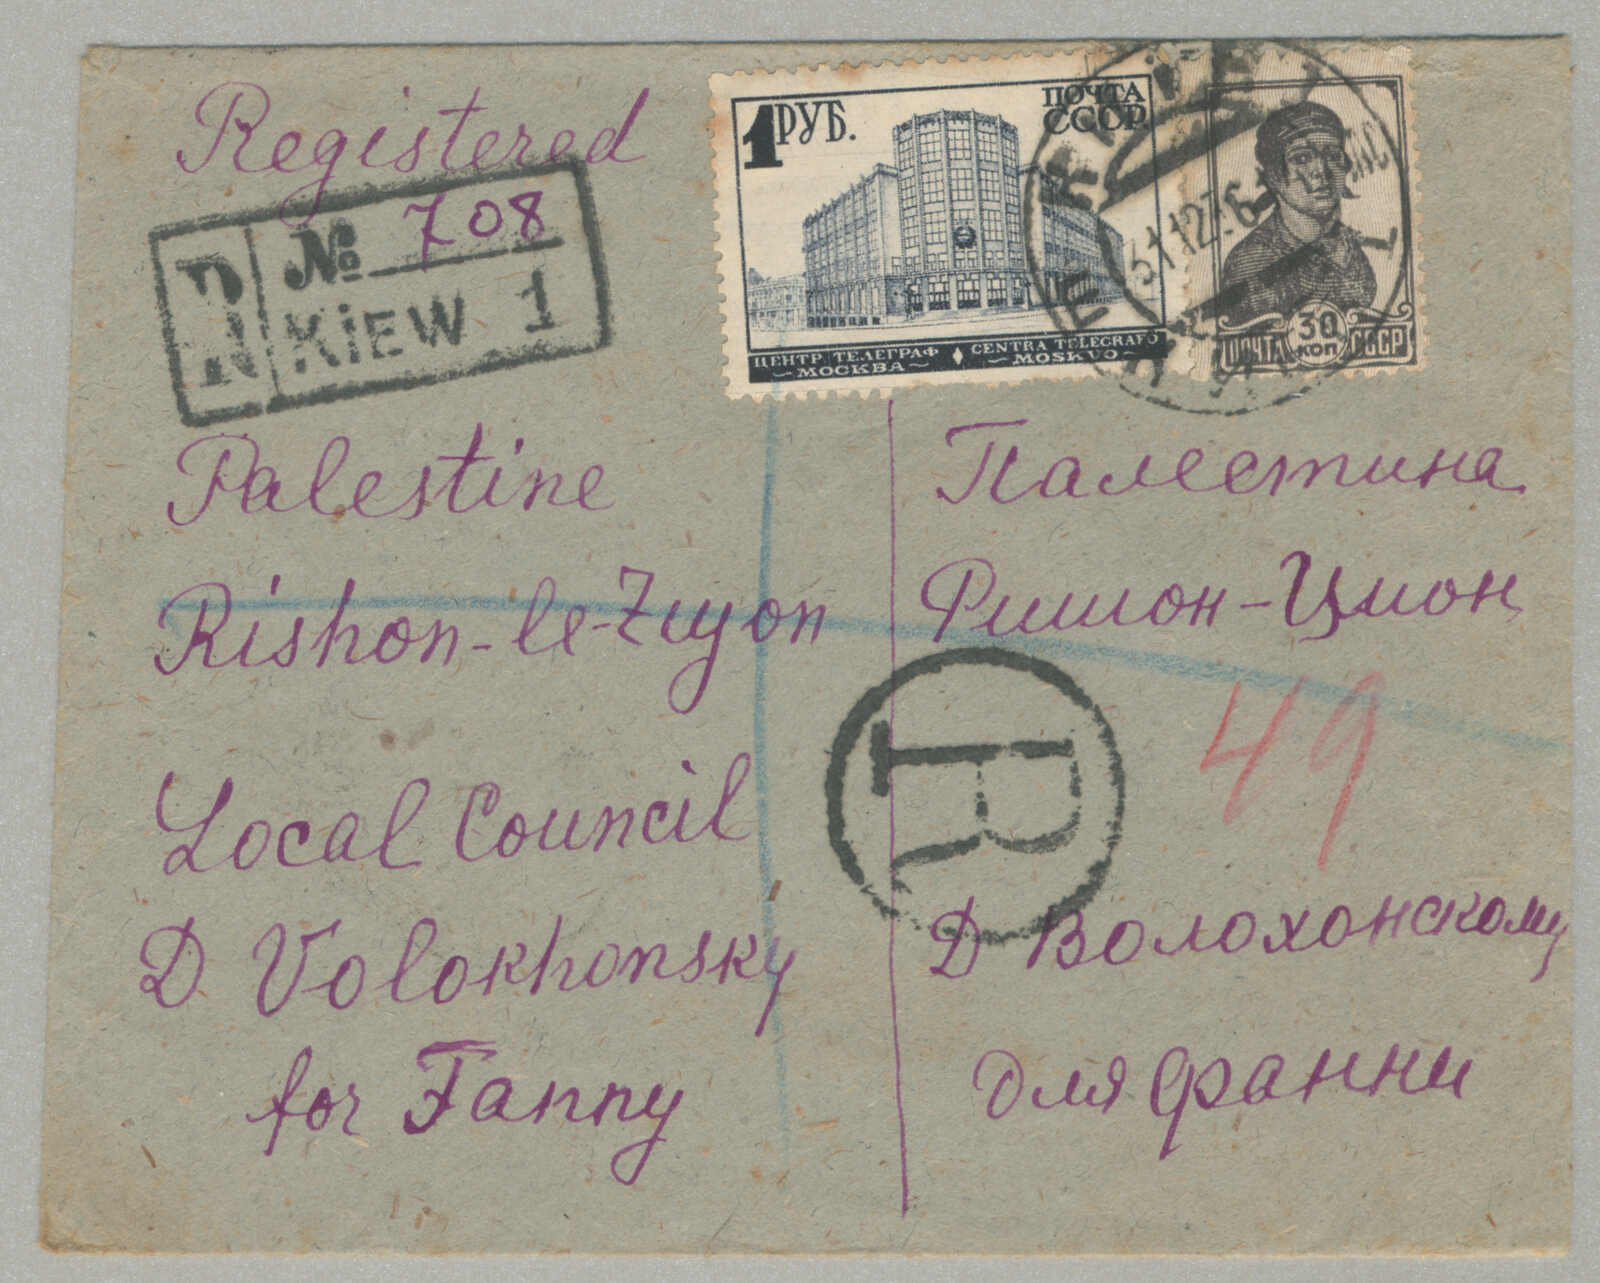 Registered
R
N
№ 708
KiEW 1
1 РУБ.
ПОЧТА
СССР
ЦЕНТР. ТЕЛЕГРАФ
МОСКВА
CENTRA TELEGRAFO
MOSKVO
30
КОП
ПОЧТА СССР
Palestine
Rishon-le-Ziyon
Local Council
D Volokhonsky
for Fanny
Палестина
Ришон-Цион
49
R
Д Волохонскому
для Фанни